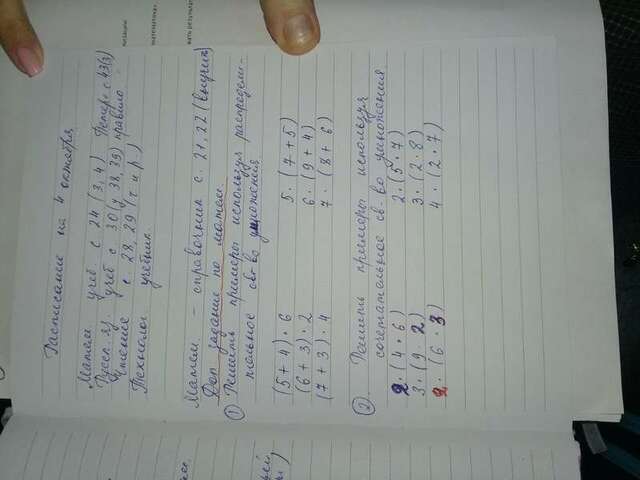 Расписание на 4 октября
Матем учеб с 24 (3, 4) Петерс с 43(3)
Русск. яз. учеб с 30 (у 38, 39) правило
Чтение с 28, 29 (ч и р)
Технолог учебник.
Матем - справочник с. 21, 22 (выучить)
Доп задание по матем.
① Решить примеры используя распредели-
тельное св-во умножения
(5 + 4) · 6 5 · (7 + 5)
(6 + 3) · 2 6 · (9 + 4)
(7 + 3) · 4 7 · (8 + 6)
② Решить примеры используя
сочетательное св. во умножения
2 · (4 · 6) 2 · (5 · 7)
3 · (9 · 2) 3 · (2 · 8)
2 · (6 · 3) 4 · (2 · 7)